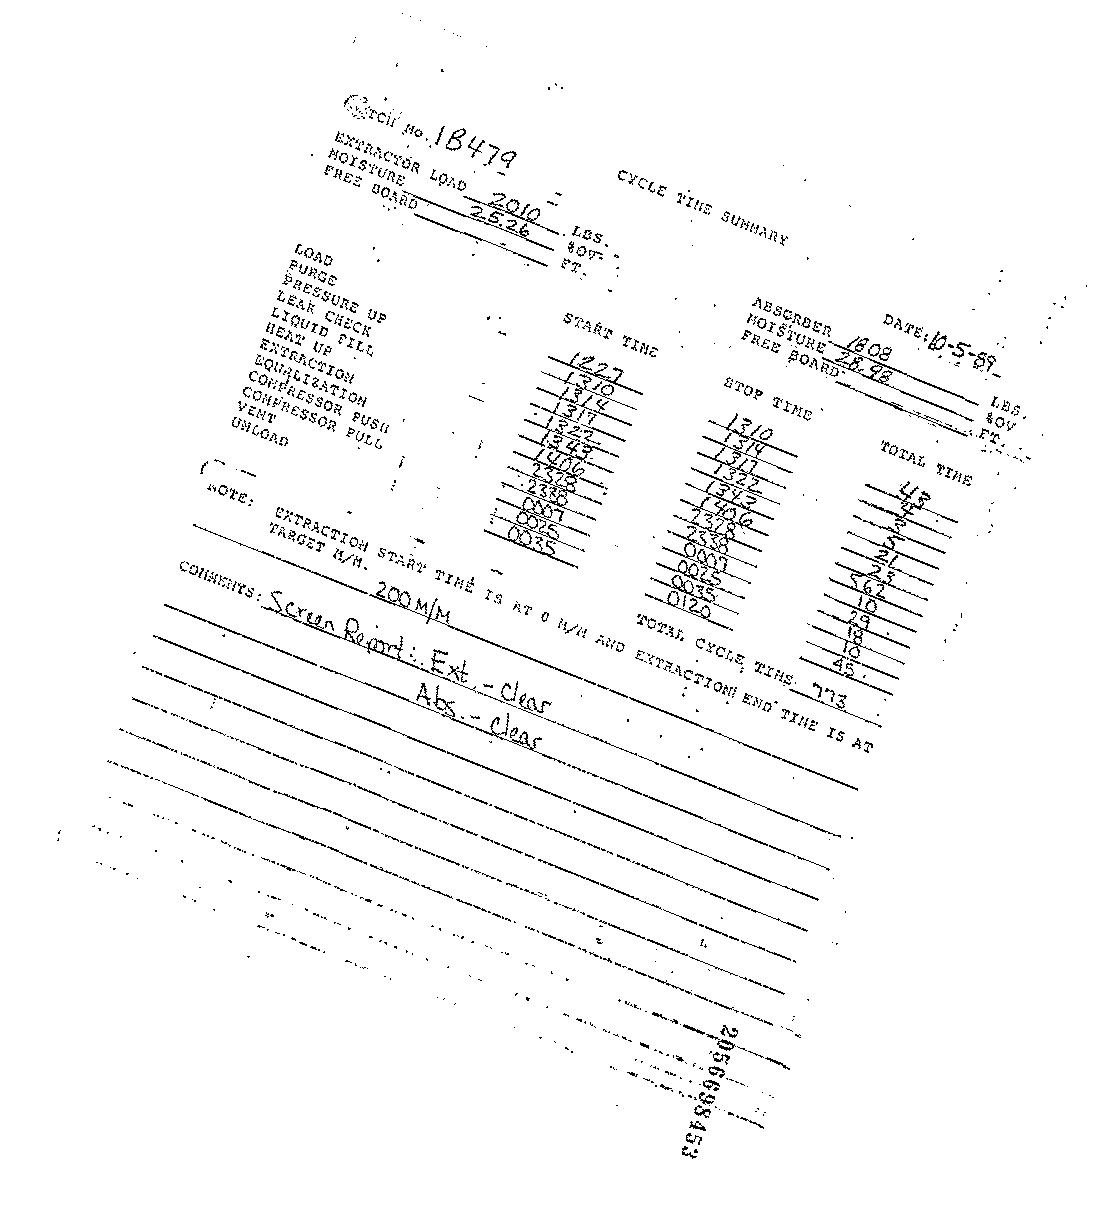 CYCLE TIME SUMMARY
No. 1B479
DATE: 10-5-89
EXTRACTOR LOAD 2010 LBS.
MOISTURE 25.26 %OV
FREE BOARD FT.
ABSORBER 1808 LBS.
MOISTURE 28.98 %OV
FREE BOARD FT.
START TIME STOP TIME TOTAL TIME
LOAD 1227 1310 43
PURGE 1310 1314 4
PRESSURE UP 1314 1317 3
LEAK CHECK 1317 1322 5
LIQUID FILL 1322 1343 21
HEAT UP 1343 1406 23
EXTRACTION 1406 2328 562
EQUALIZATION 2328 2338 10
COMPRESSOR PUSH 2338 0007 29
COMPRESSOR PULL 0007 0025 18
VENT 0025 0035 10
UNLOAD 0035 0120 45
TOTAL CYCLE TIME 773
NOTE: EXTRACTION START TIME IS AT 0 M/M AND EXTRACTION END TIME IS AT
TARGET M/M. 200 M/M
COMMENTS: Screen Report: Ext. - Clear
Abs. - Clear
2056698453